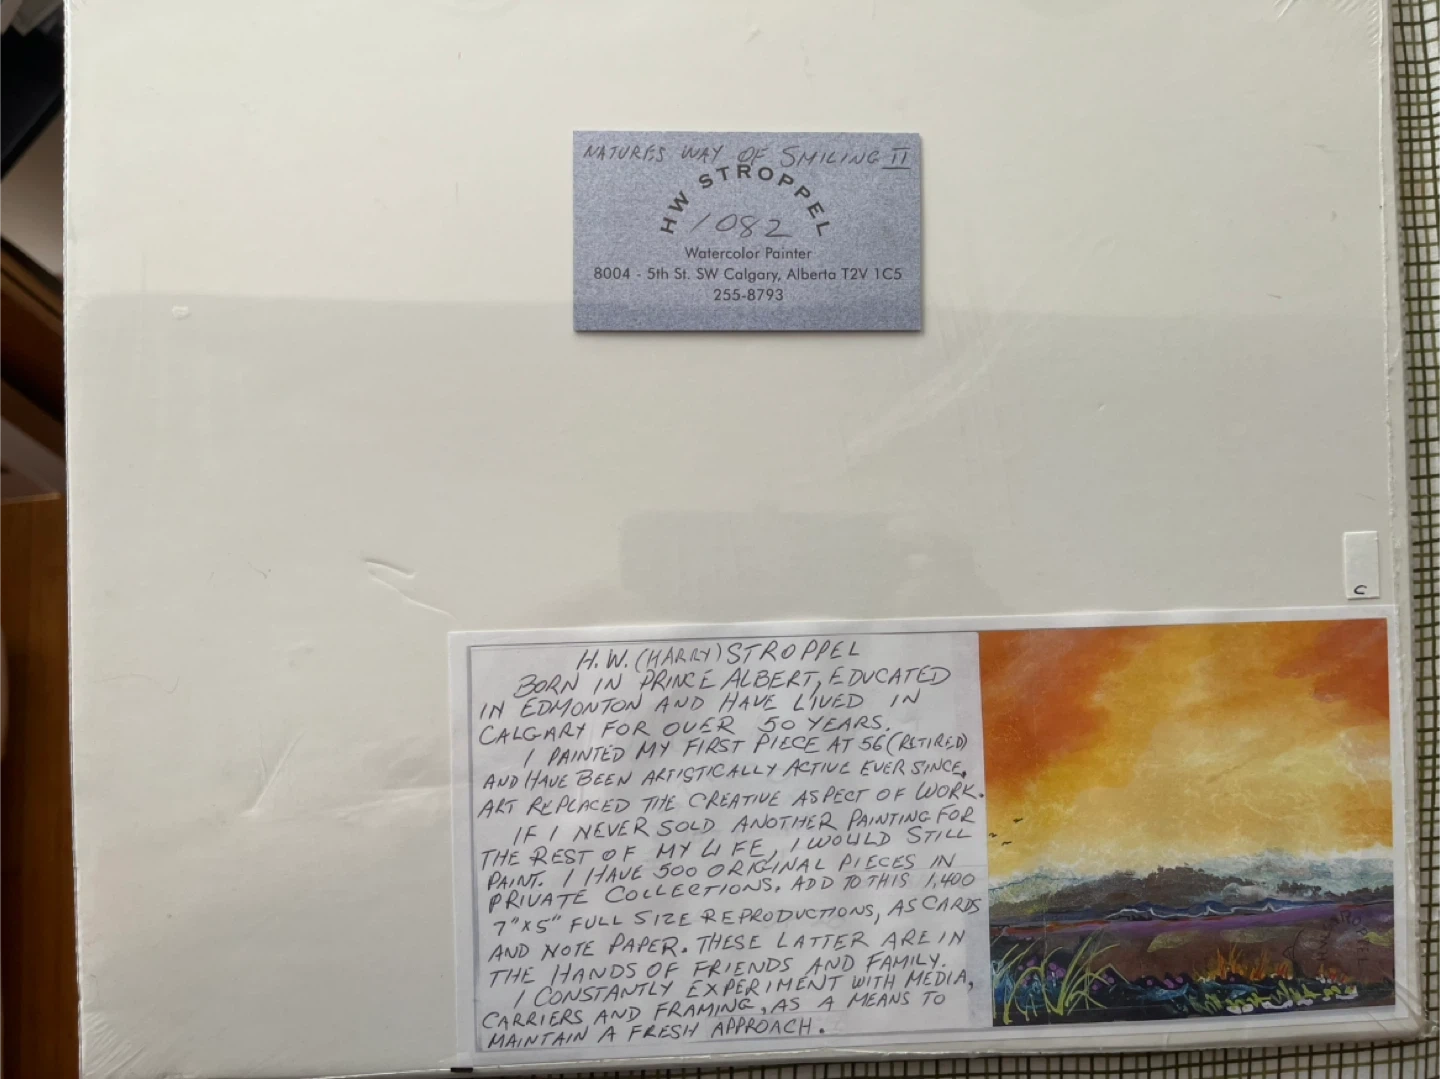 NATURES WAY OF SMILING II
HW STROPPEL
1082
Watercolor Painter
8004 - 5th St. SW Calgary, Alberta T2V 1C5
255-8793
C
H.W. (HARRY) STROPPEL
BORN IN PRINCE ALBERT, EDUCATED
IN EDMONTON AND HAVE LIVED IN
CALGARY FOR OVER 50 YEARS.
I PAINTED MY FIRST PIECE AT 56 (RETIRED)
AND HAVE BEEN ARTISTICALLY ACTIVE EVER SINCE.
ART REPLACED THE CREATIVE ASPECT OF WORK.
IF I NEVER SOLD ANOTHER PAINTING FOR
THE REST OF MY LIFE, I WOULD STILL
PAINT. I HAVE 500 ORIGINAL PIECES IN
PRIVATE COLLECTIONS. ADD TO THIS 1,400
7"x5" FULL SIZE REPRODUCTIONS, AS CARDS
AND NOTE PAPER. THESE LATTER ARE IN
THE HANDS OF FRIENDS AND FAMILY.
I CONSTANTLY EXPERIMENT WITH MEDIA,
CARRIERS AND FRAMING, AS A MEANS TO
MAINTAIN A FRESH APPROACH.